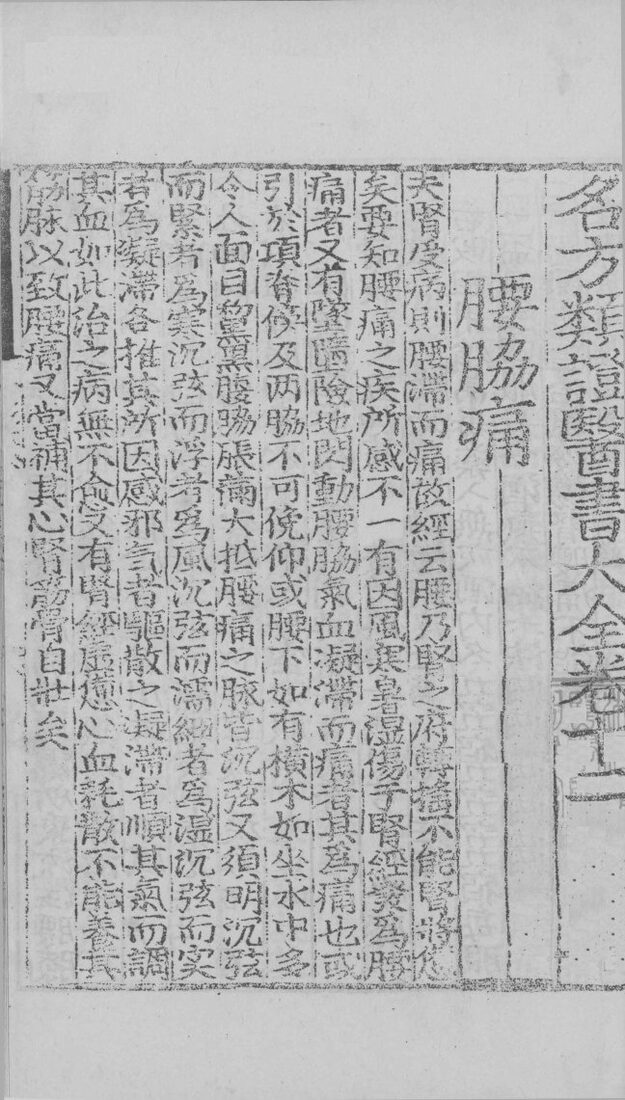 名方類證醫書大全卷十二
腰脇痛
夫腎受病則腰滯而痛故經云腰乃腎之府轉搖不能腎將憊
矣要知腰痛之疾所感不一有因風寒暑湿傷于腎經發為腰
痛者又有墜墮險地閃動腰脇氣血凝滯而痛者其為痛也或
引於項脊俠及两脇不可俛仰或腰下如有横木如坐水中多
令人面目黧黒腰脇脹滿大抵腰痛之脉皆沉弦又須明沉弦
而緊者為寒沉弦而浮者為風沉弦而濡細者為湿沉弦而实
者為凝滯各推其所因感邪气者驅散之凝滯者順其氣而調
其血如此治之病無不愈又有腎經虛憊心血耗散不能養其
筋脉以致腰痛又當補其心腎筋骨自壯矣